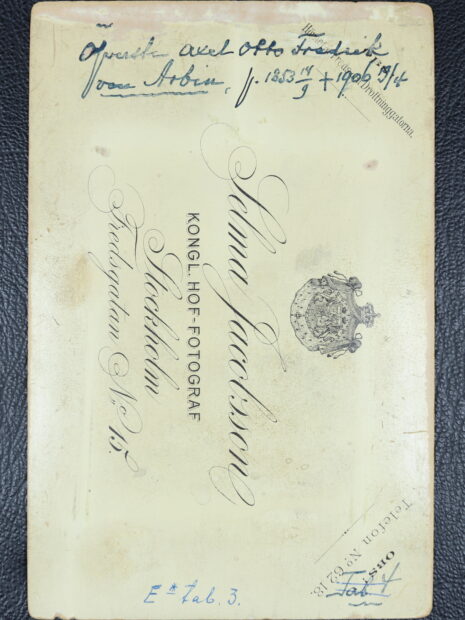 Öfverste Axel Otto Fredrik
von Arbin, f. 1853 14/9 + 1909 19/4
Drottninggatorna.
Selma Jacobsson
KONGL. HOF-FOTOGRAF
Stockholm
Fredsgatan No 15.
OBS!
Telefon No 62 18.
E a tab. 3.
Tab 4